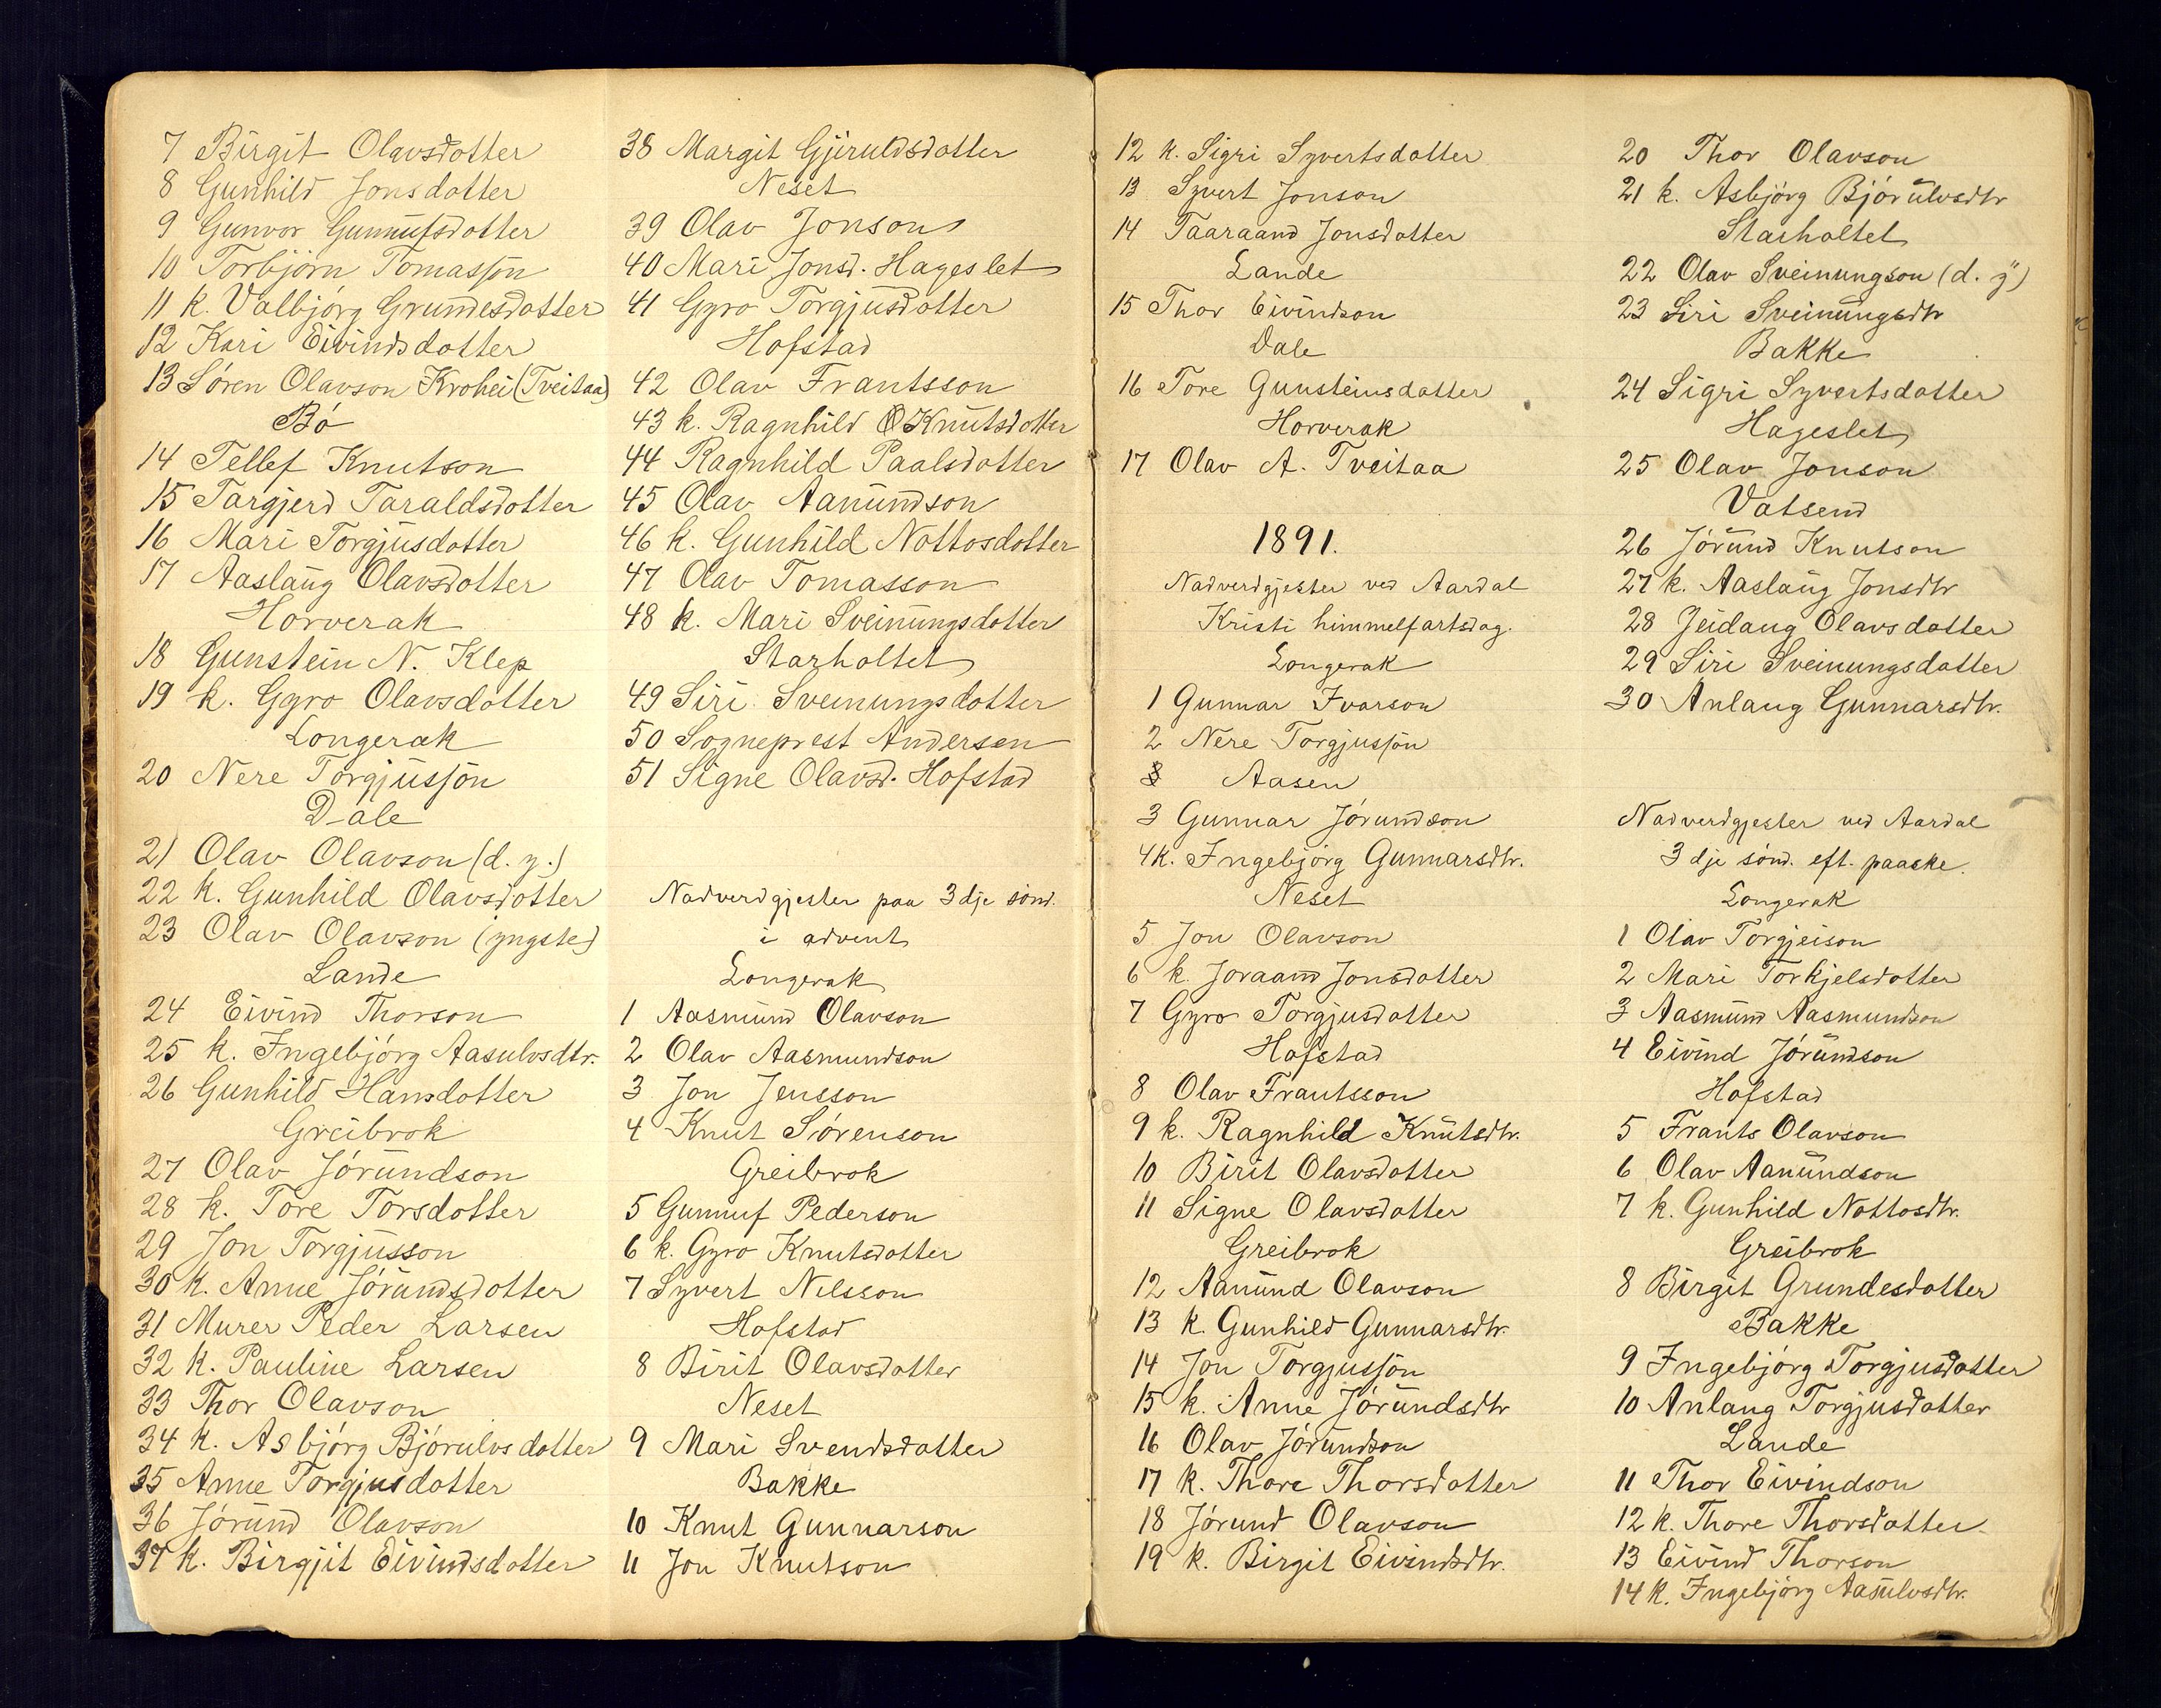 7 Birgit Olavsdotter
8 Gunhild Jonsdotter
9 Gunvor Gunnufsdotter
10 Torbjörn Tomasson
11 k. Valbjörg Grundesdotter
12 Kari Eivindsdotter
13 Sóren Olavson Krohei (Tveitaa)
Bó
14 Tellef Knutson
15 Targjerd Taraldsdotter
16 Mari Torgjusdotter
17 Aaslaug Olavsdotter
Horverak
18 Gunstein N. Klep
19 k. Gyro Olavsdotter
Longerak
20 Nere Torgjusson
Dale
21 Olav Olavson (d. y.)
22 k. Gunhild Olavsdotter
23 Olav Olavson (yngste)
Lande
24 Eivind Thorson
25 k. Ingebjórg Aasulvsdtr.
26 Gunhild Hansdotter
Greibrok
27 Olav Jórundson
28 k. Tore Torsdotter
29 Jon Torgjusson
30 k. Anne Jórundsdotter
31 Murer Peder Larsen
32 k. Pauline Larsen
33 Thor Olavson
34 k. Asbjórg Bjórulvsdotter
35 Anne Torgjusdotter
36 Jórund Olavson
37 k. Birgjit Eivindsdotter
38 Margit Gjeruldsdotter
Neset
39 Olav Jonson
40 Mari Jonsd. Hageslet
41 Gyro Torgjusdotter
Hofstad
42 Olav Frantsson
43 k. Ragnhild Knutsdotter
44 Ragnhild Paalsdotter
45 Olav Aanundson
46 k. Gunhild Nottosdotter
47 Olav Tomasson
48 k. Mari Sveinungsdotter
Starholtet
49 Siri Sveinungsdotter
50 Sogneprest Andersen
51 Signe Olavsd. Hofstad
Nadverdgjester paa 3dje sónd.
i advent
Longerak
1 Aasmund Olavson
2 Olav Aasmundson
3 Jon Jensson
4 Knut Sórenson
Greibrok
5 Gunnuf Pederson
6 k. Gyro Knutsdotter
7 Syvert Nilsson
Hofstad
8 Birit Olavsdotter
Neset
9 Mari Svendsdotter
Bakke
10 Knut Gunnarson
11 Jon Knutson
12 k. Sigri Syvertsdotter
13 Syvert Jonson
14 Taaraand Jonsdotter
Lande
15 Thor Eivindson
Dale
16 Tore Gunsteinsdotter
Horverak
17 Olav A. Tveitaa
1891.
Nadverdgjester ved Aardal
Kristi himmelfartsdag.
Longerak
1 Gunnar Ivarson
2 Nere Torgjusson
Aasen
3 Gunnar Jórundson
4 k. Ingebjórg Gunnarsdtr.
Neset
5 Jon Olavson
6 k. Joraand Jonsdotter
7 Gyro Torgjusdotter
Hofstad
8 Olav Frantsson
9 k. Ragnhild Knutsdtr.
10 Birit Olavsdotter
11 Signe Olavsdotter
Greibrok
12 Aanund Olavson
13 k. Gunhild Gunnarsdtr.
14 Jon Torgjusson
15 k. Anne Jórundsdtr
16 Olav Jórundson
17 k. Thore Thorsdotter
18 Jórund Olavson
19 k. Birgit Eivindsdtr.
20 Thor Olavson
21 k. Asbjórg Bjórulvsdtr
Starholtet
22 Olav Sveinungson (d. y.)
23 Siri Sveinungsdtr
Bakke
24 Sigri Syvertsdotter
Hageslet
25 Olav Jonson
Vatsend
26 Jórund Knutson
27 k. Aaslaug Jonsdtr
28 Jeidaug Olavsdotter
29 Siri Sveinungsdotter
30 Anlaug Gunnarsdtr.
Nadverdgjester ved Aardal
3dje sónd. eft. paaske.
Longerak
1 Olav Torgjeison
2 Mari Torkjelsdotter
3 Aasmund Aasmundson
4 Eivind Jórundson
Hofstad
5 Frants Olavson
6 Olav Aanundson
7 k. Gunhild Nottosdtr.
Greibrok
8 Birgit Grundesdotter
Bakke
9 Ingebjórg Torgjusdotter
10 Anlaug Torgjusdotter
Lande
11 Thor Eivindson
12 k. Thore Thorsdotter
13 Eivind Thorson
14 k. Ingebjórg Aasulvsdtr.